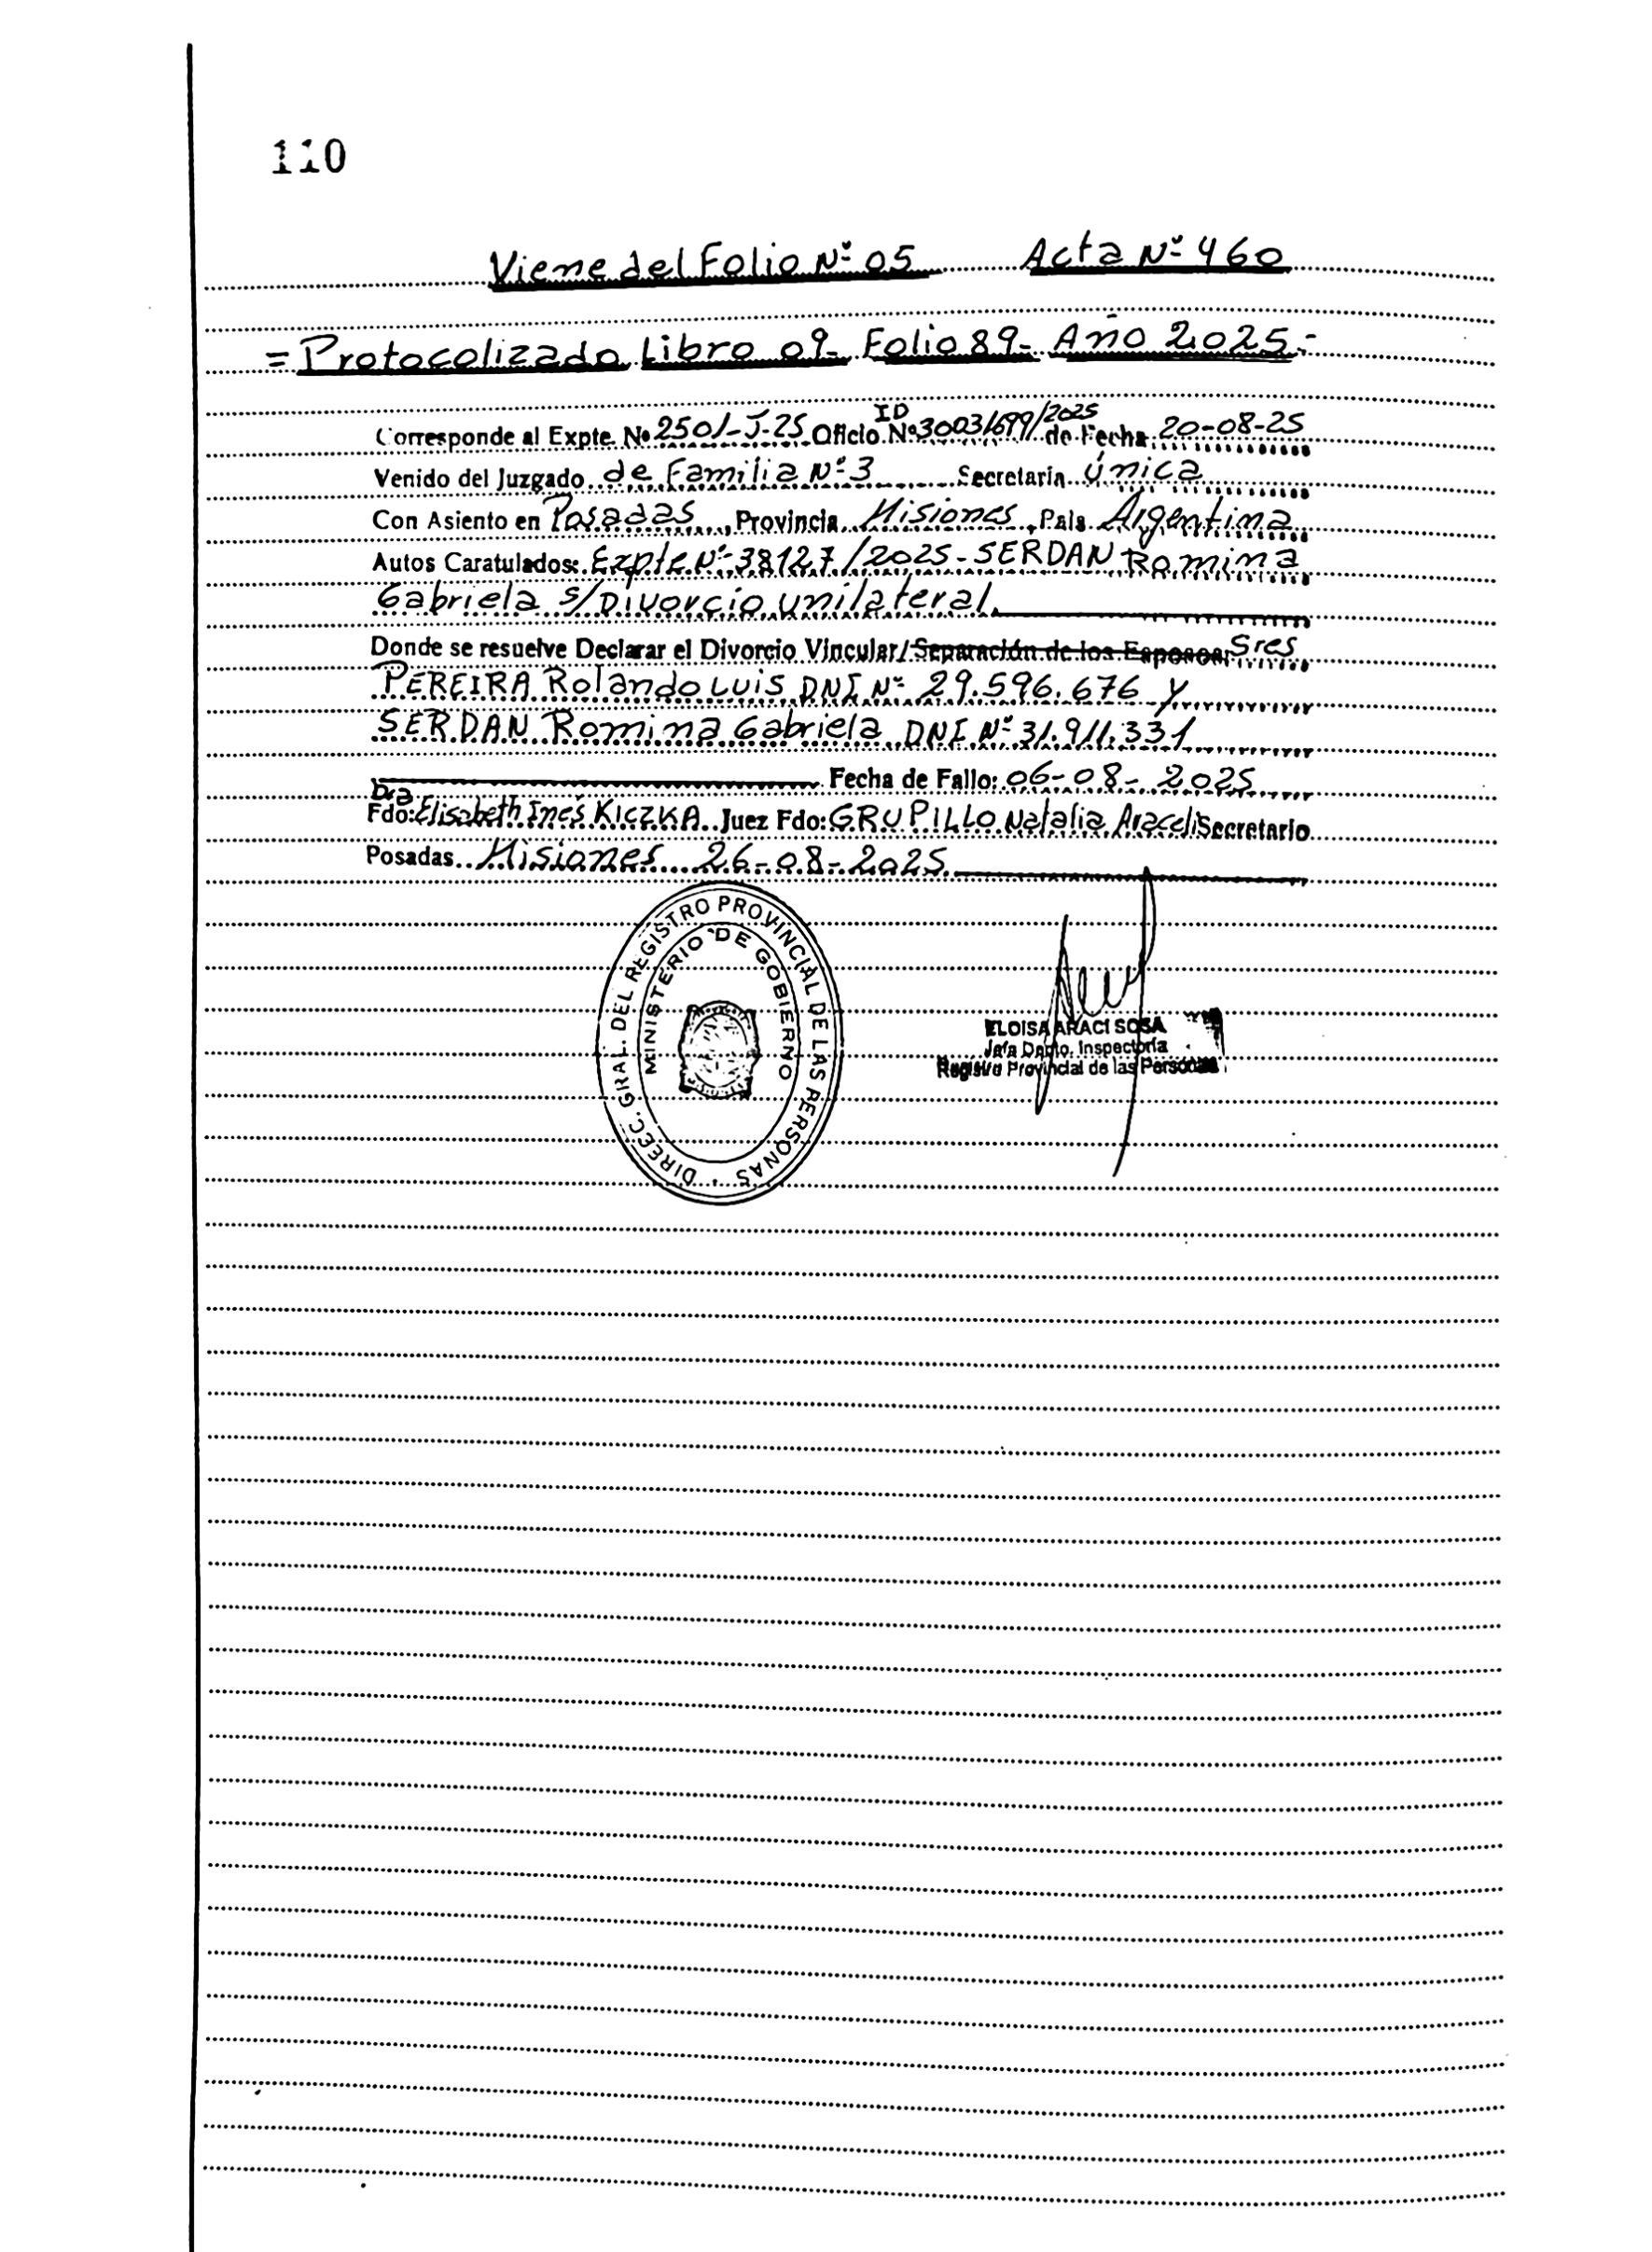 110
Viene del Folio Nº 05 Acta Nº 460
= Protocolizado Libro 09- Folio 89- Año 2025.-
Corresponde al Expte. Nº 2501-J-25 Oficio ID Nº 30031699/2025 de Fecha 20-08-25
Venido del Juzgado de Familia Nº 3 Secretaria única
Con Asiento en Posadas, Provincia Misiones, País Argentina
Autos Caratulados: Expte Nº 38127/2025- SERDAN Romina
Gabriela s/Divorcio unilateral.
Donde se resuelve Declarar el Divorcio Vincular/Separación de los Esposos: Sres
PEREIRA Rolando Luis DNI Nº 29.596.676 y
SERDAN Romina Gabriela DNI Nº 31.911.331
Fecha de Fallo: 06-08-2025
Fdo: Dra Elisabeth Inés KICZKA Juez Fdo: GRUPILLO Natalia Araceli Secretario
Posadas Misiones 26-08-2025
DIREC. GRAL. DEL REGISTRO PROVINCIAL DE LAS PERSONAS
MINISTERIO DE GOBIERNO
ELOISA ARACI SOSA
Jefa Depto. Inspectoría
Registro Provincial de las Personas